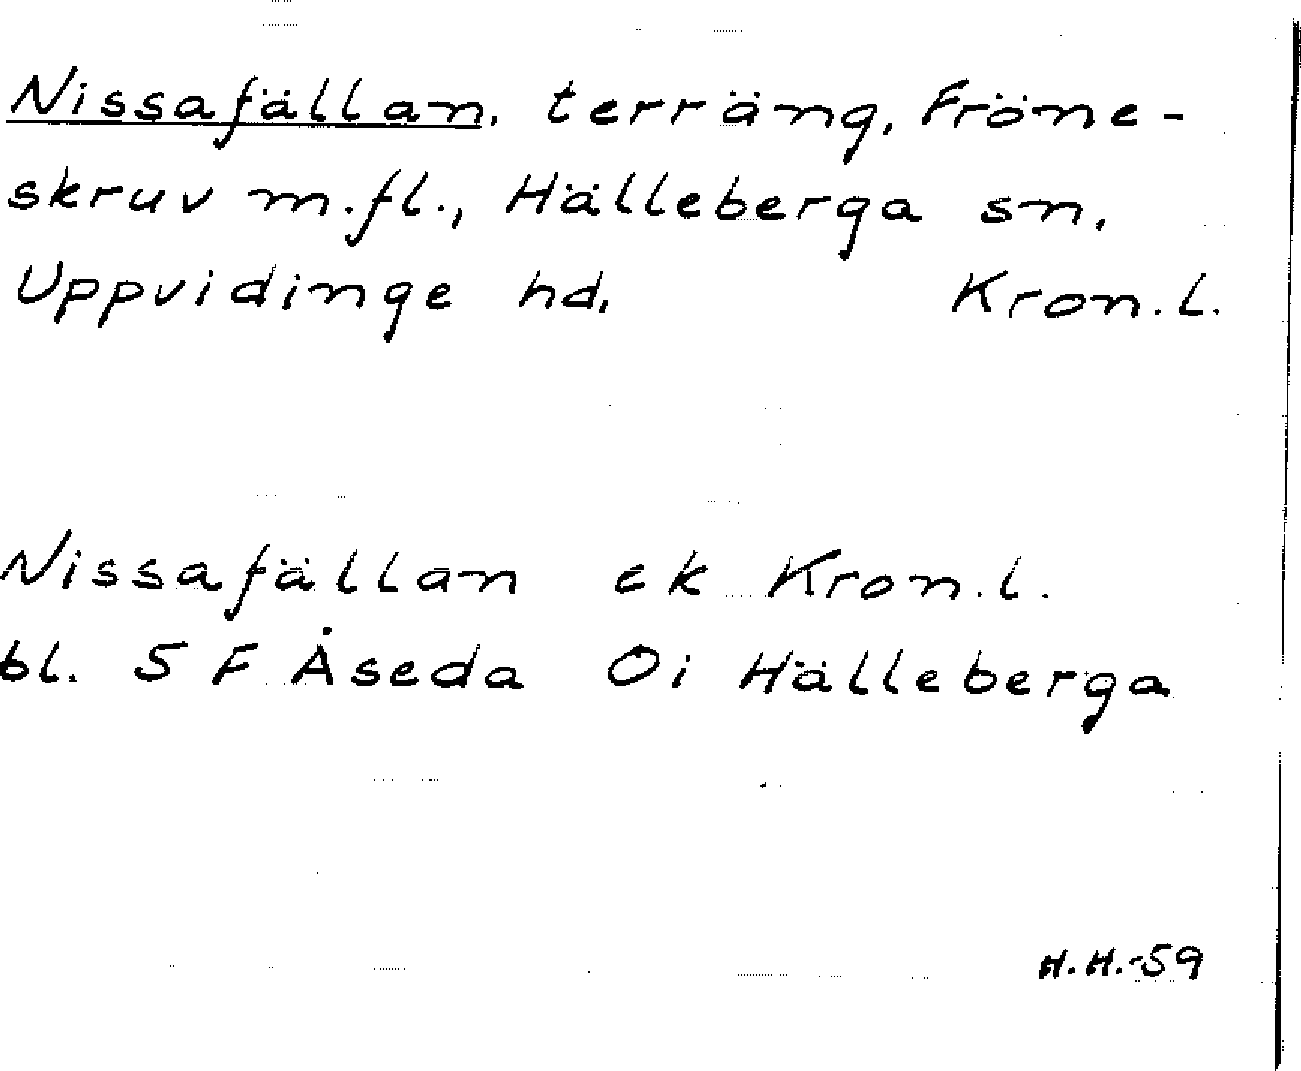 Nissafällan, terräng, Fröne-
skruv m.fl., Hälleberga sn,
Uppvidinge hd, Kron.l.
Nissafällan ek Kron.l.
bl. 5 F Åseda Oi Hälleberga
H.H.-59